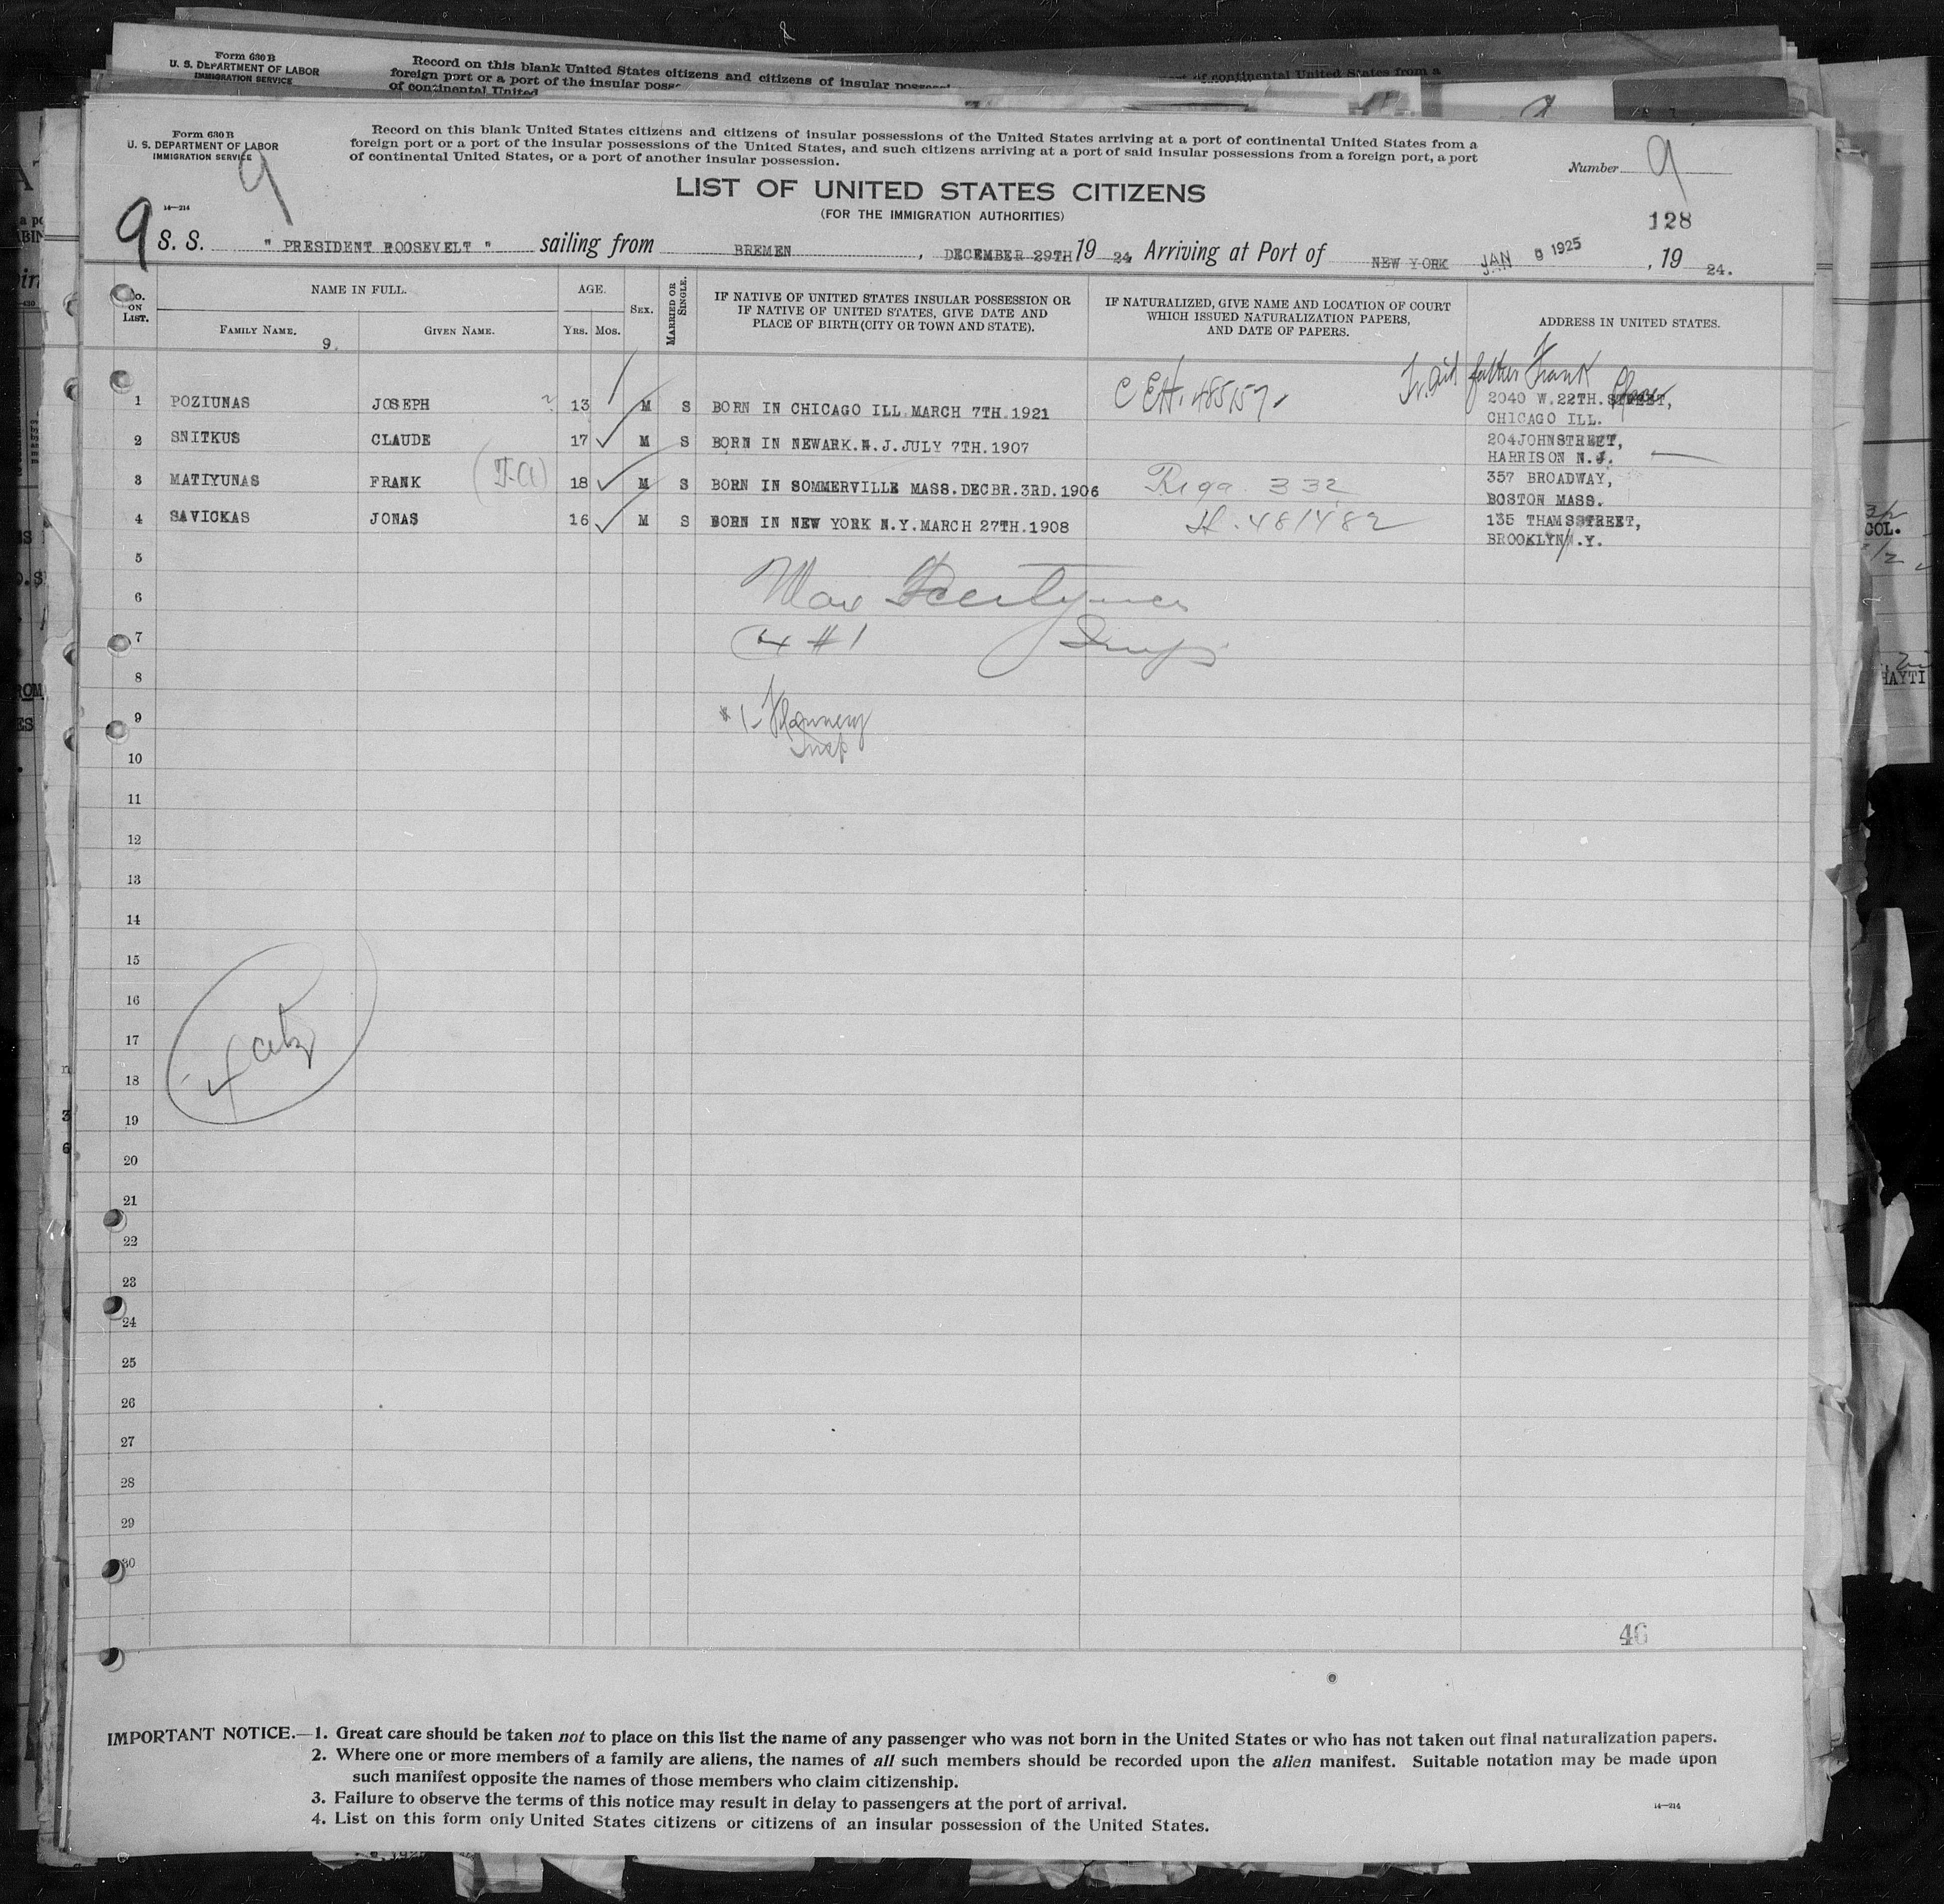 Form 630 B
U. S. DEPARTMENT OF LABOR
IMMIGRATION SERVICE
Record on this blank United States citizens and citizens of
foreign port or a port of the insular
of continental United
of continental United States from a
Form 630 B
U. S. DEPARTMENT OF LABOR
IMMIGRATION SERVICE
Record on this blank United States citizens and citizens of insular possessions of the United States arriving at a port of continental United States from a
foreign port or a port of the insular possessions of the United States, and such citizens arriving at a port of said insular possessions from a foreign port, a port
of continental United States, or a port of another insular possession.
Number 9
9
LIST OF UNITED STATES CITIZENS
(FOR THE IMMIGRATION AUTHORITIES)
14—214
128
9 S. S. " PRESIDENT ROOSEVELT " sailing from BREMEN , DECEMBER 29TH 19 24, Arriving at Port of NEW YORK JAN 9 1925 , 19 24.
No. ON LIST.
NAME IN FULL.
FAMILY NAME.
GIVEN NAME.
9.
AGE.
YRS. MOS.
SEX.
MARRIED OR SINGLE.
IF NATIVE OF UNITED STATES INSULAR POSSESSION OR
IF NATIVE OF UNITED STATES, GIVE DATE AND
PLACE OF BIRTH (CITY OR TOWN AND STATE).
IF NATURALIZED, GIVE NAME AND LOCATION OF COURT
WHICH ISSUED NATURALIZATION PAPERS,
AND DATE OF PAPERS.
ADDRESS IN UNITED STATES.
father Frank
1 POZIUNAS JOSEPH 13 M S BORN IN CHICAGO ILL. MARCH 7TH.1921 2040 W.22TH.STREET, Place
CHICAGO ILL.
2 SNITKUS CLAUDE 17 M S BORN IN NEWARK.N.J.JULY 7TH.1907 204JOHNSTREET,
HARRISON N.J.
3 MATIYUNAS FRANK 18 M S BORN IN SOMMERVILLE MASS.DECBR.3RD.1906 Riga 332 357 BROADWAY,
BOSTON MASS.
4 SAVICKAS JONAS 16 M S BORN IN NEW YORK N.Y.MARCH 27TH.1908 H. 481482 135 THAMSSTREET,
BROOKLYN N.Y.
5
6 Max
7 #1 Insp
8
9 #1- Flannery
Insp
10
11
12
13
14
15
16
17
18
19
20
21
22
23
24
25
26
27
28
29
30
46
IMPORTANT NOTICE.—1. Great care should be taken not to place on this list the name of any passenger who was not born in the United States or who has not taken out final naturalization papers.
2. Where one or more members of a family are aliens, the names of all such members should be recorded upon the alien manifest. Suitable notation may be made upon
such manifest opposite the names of those members who claim citizenship.
3. Failure to observe the terms of this notice may result in delay to passengers at the port of arrival.
4. List on this form only United States citizens or citizens of an insular possession of the United States.
14—214
COL.
HAYTI